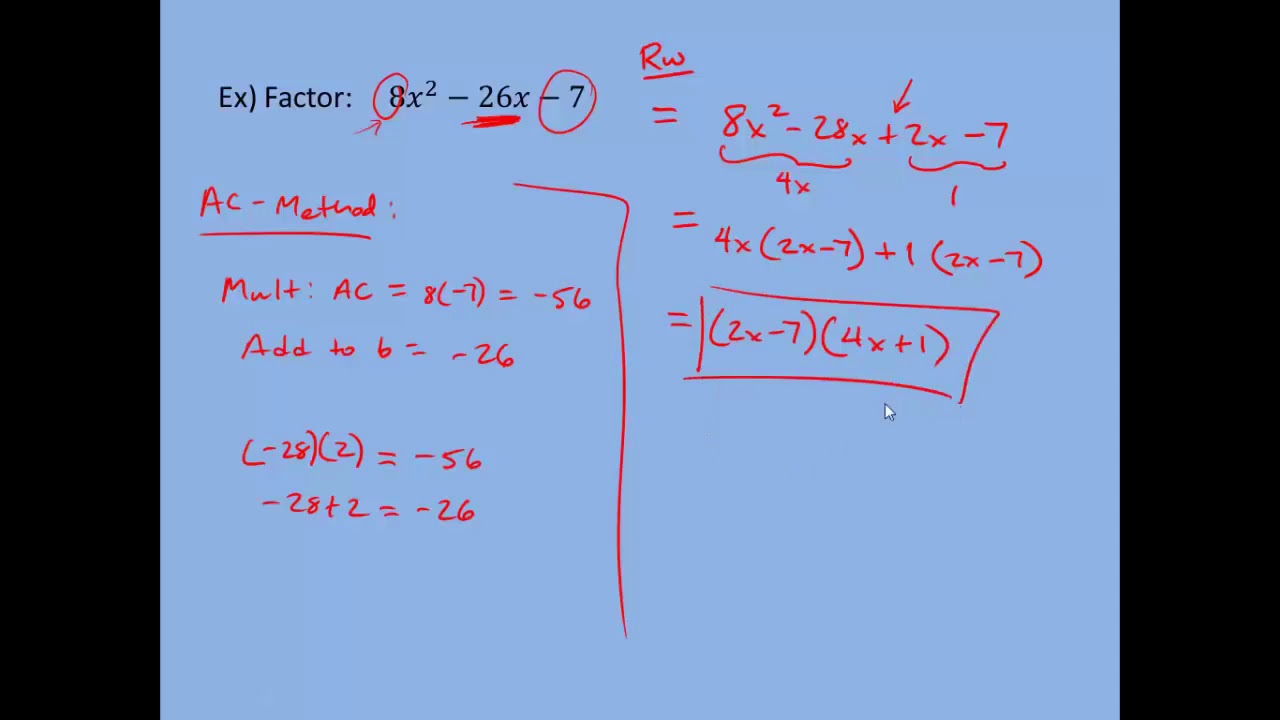 Ex) Factor: 8x² − 26x − 7
AC - Method:
Mult: AC = 8(-7) = -56
Add to b = -26
(-28)(2) = -56
-28+2 = -26
Rw
= 8x² - 28x + 2x - 7
4x 1
= 4x(2x-7) + 1(2x-7)
= (2x-7)(4x+1)